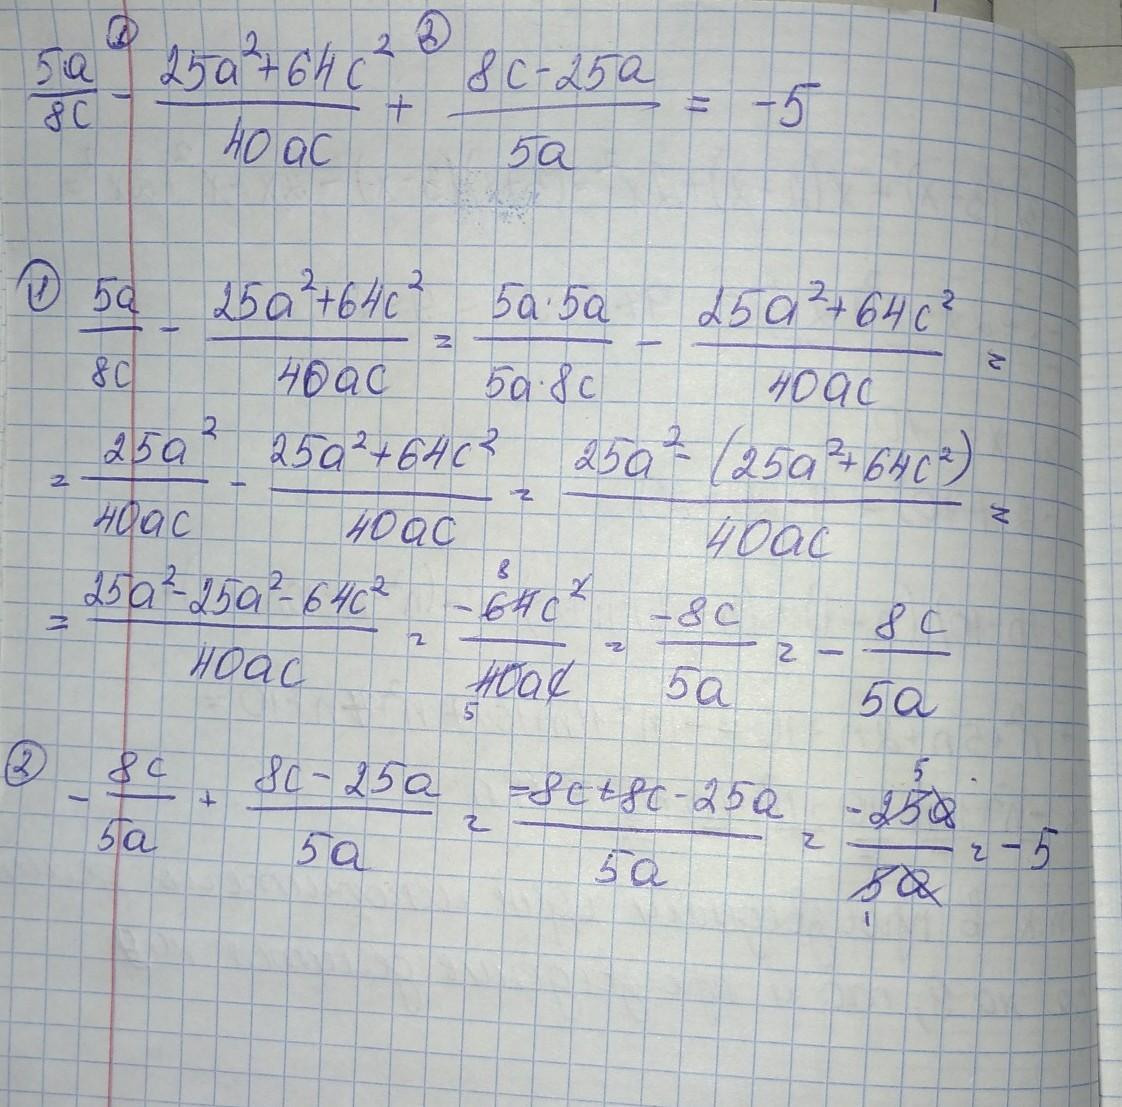 ① ②
5a/8c - (25a²+64c²)/40ac + (8c-25a)/5a = -5
① 5a/8c - (25a²+64c²)/40ac = 5a·5a/5a·8c - (25a²+64c²)/40ac =
= 25a²/40ac - (25a²+64c²)/40ac = (25a²-(25a²+64c²))/40ac =
= (25a²-25a²-64c²)/40ac = -64c²/40ac = -8c/5a = - 8c/5a
② - 8c/5a + (8c-25a)/5a = (-8c+8c-25a)/5a = -25a/5a = -5